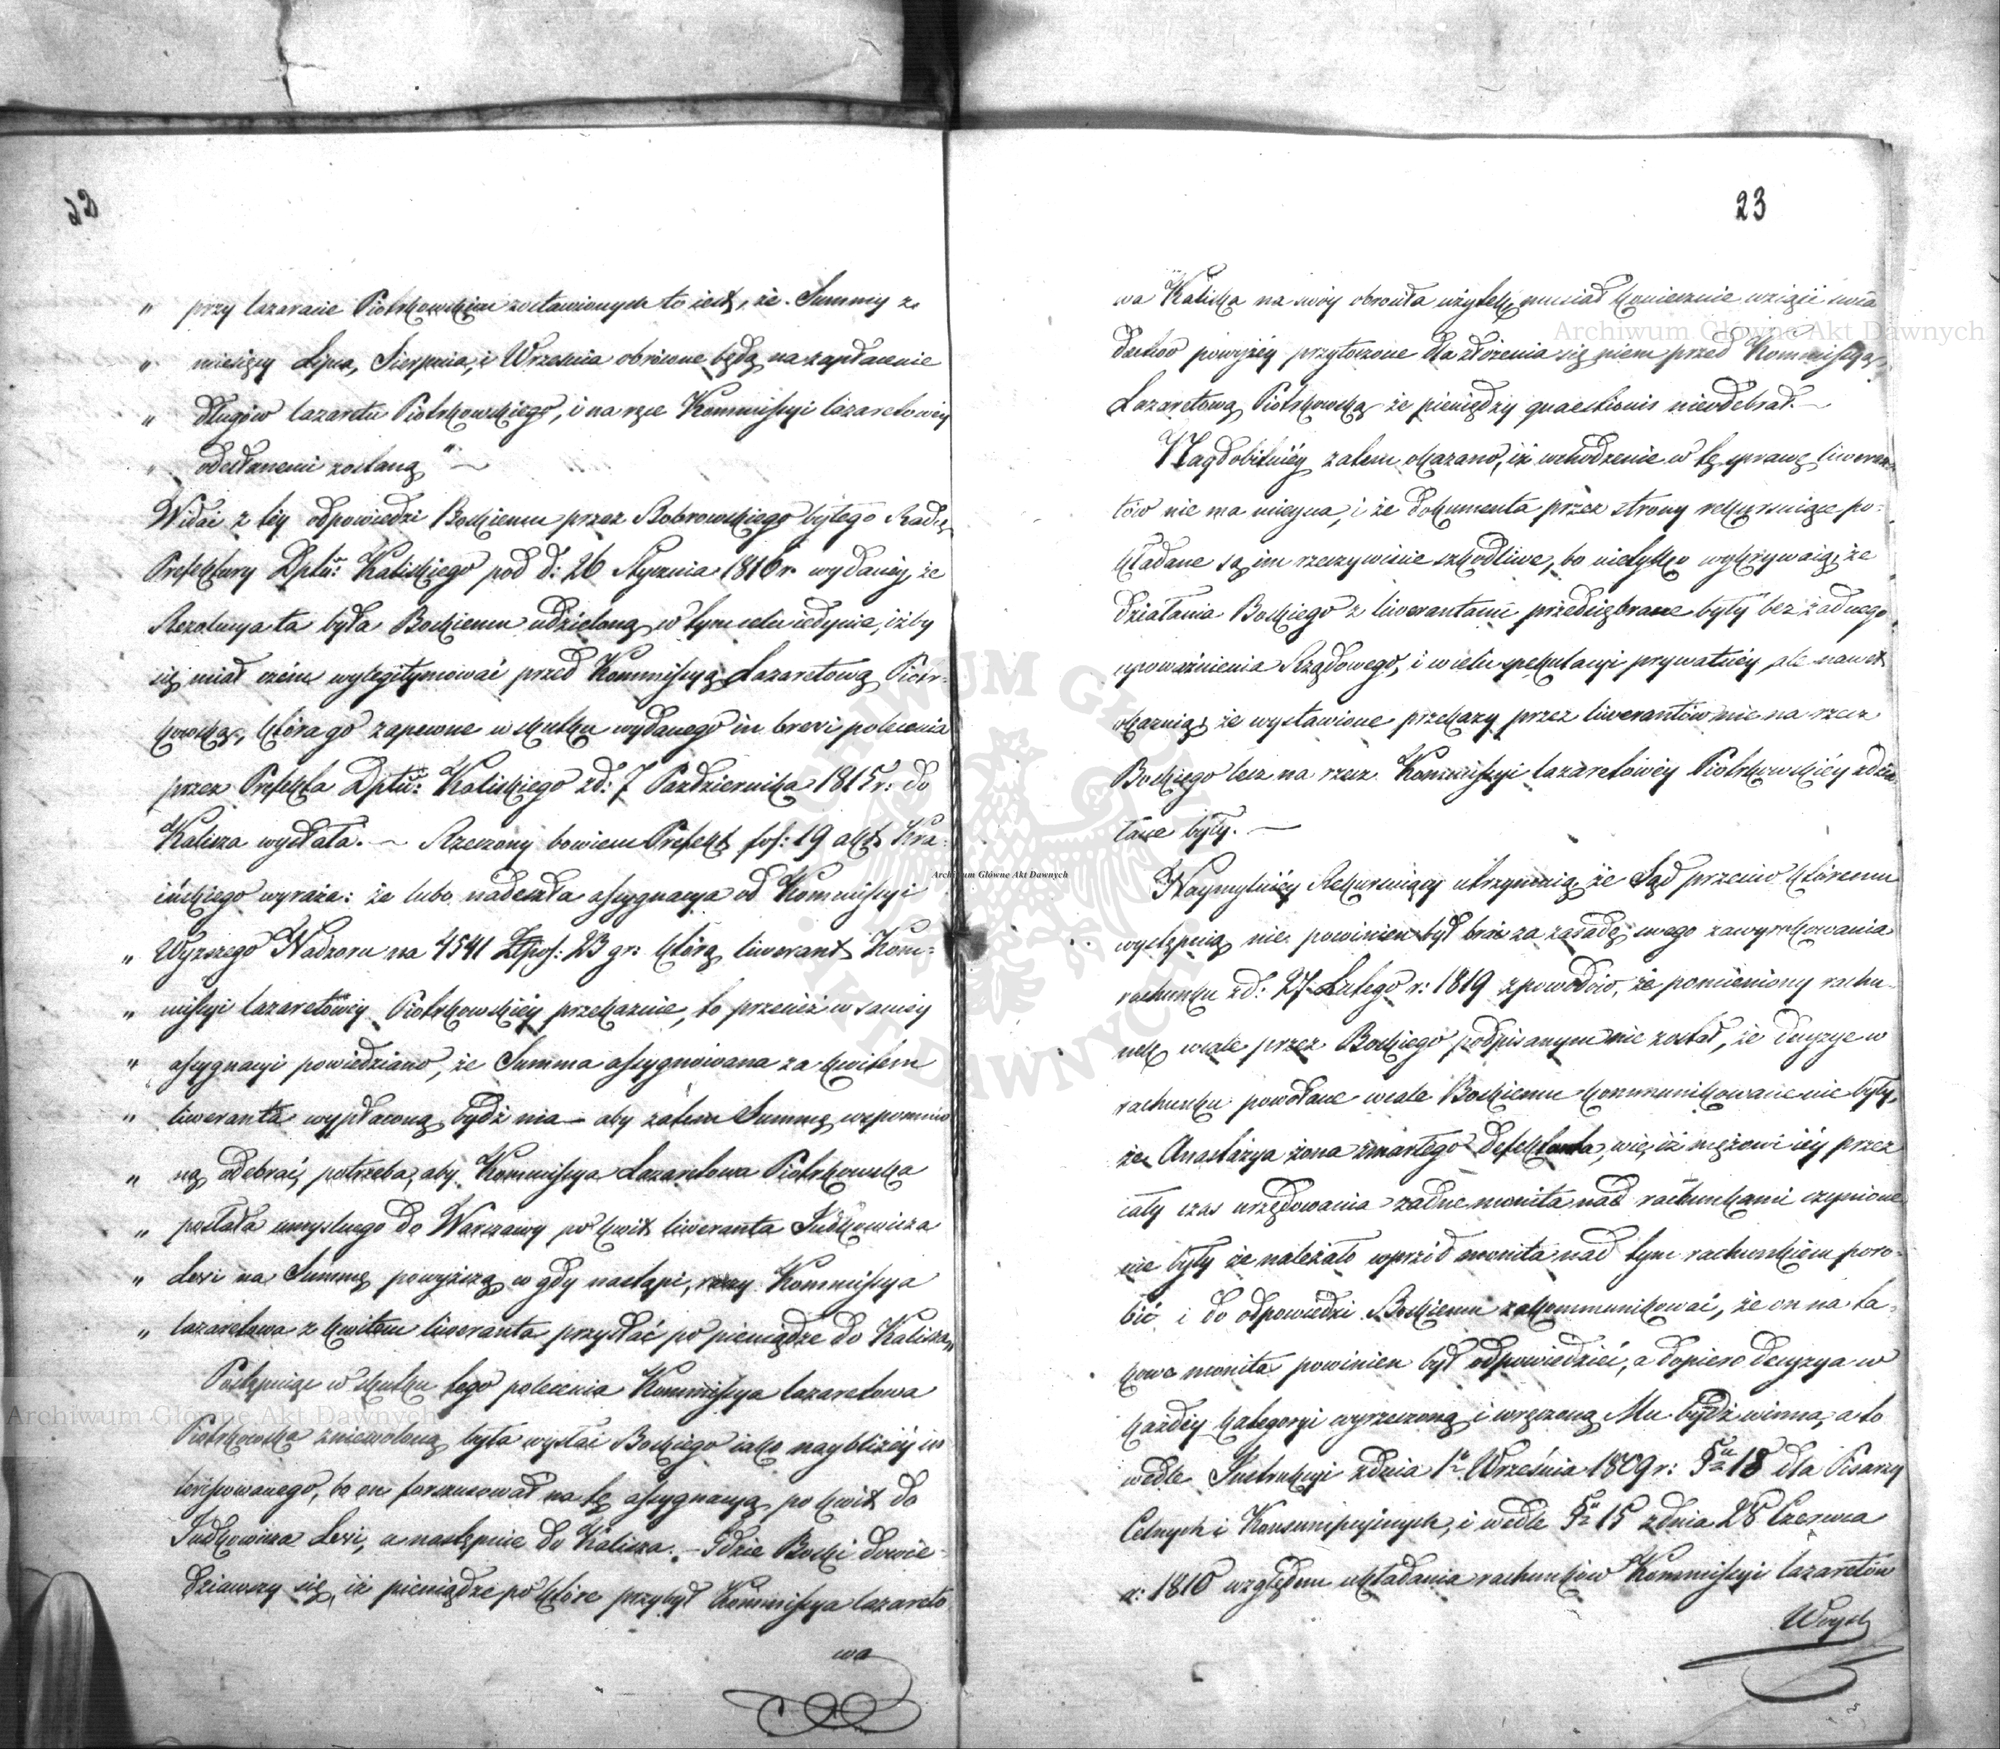 22
" przy lazarecie Piotrkowskim zostawionych to iest, że Summy za
" miesięcy Lipca, Sierpnia, i Września obrócone będą na zapłacenie
" długów lazaretu Piotrkowskiego, i na ręce Kommissyi lazaretowey
" odesłanemi zostaną" —
Widać z tey odpowiedzi Bockiemu przez Bobrowskiego byłego Radcę
Prefektury Dptu: Kaliskiego pod d: 26 Stycznia 1816 r. wydaney, że
Rezolucya ta była Bockiemu udzieloną w tym celu iedynie, iżby
się miał czém wylegitymować przed Kommissyą Lazaretową Piotr-
kowską, która go zapewne w skutku wydanego in brevi polecenia
przez Prefekta Dptu: Kaliskiego z d: 7 Października 1815 r: do
Kalisza wysłała. — Rzeczony bowiem Prefekt fol: 19 akt Kra-
ińskiego wyraża: że lubo nadeszła assygnacya od Kommissyi
" Wyższego Nadzoru na 4541 Złpol: 23 gr: którą liwerant Kom-
" missyi lazaretowéy Piotrkowskiéy przekazuie, to przecież w saméy
" assygnacyi powiedziano, że Summa assygnowana za kwitem
" liweranta wypłaconą bydź ma — aby zatem Summę wspomnio
" ną odebrać, potrzeba, aby Kommissya Lazaretowa Piotrkowska
" posłała umyślnego do Warszawy po kwit liweranta Judkowicza
" Lewi na Summę powyższą, co gdy nastąpi, raczy Kommissya
" lazaretowa z kwitem liweranta przysłać po pieniądze do Kalisza"
Postępuiąc w skutku tego polecenia Kommissya lazaretowa
Piotrkowska zniewoloną była wysłać Bockiego iako naybliżéy in
teressowanego, bo on forszusował na tę assygnacyą, po kwit do
Judkowicza Lewi, a następnie do Kalisza. — Gdzie Bocki dowie-
dziawszy się, iż pieniądze po które przybył Kommissya lazareto
wa
23
wa Kaliska na swóy obróciła użytek, musiał koniecznie wziąść świa
dectwo powyżéy przytoczone dla złożenia się niem przed Kommissyą
Lazaretową Piotrkowską że pieniędzy quaestionis nieodebrał. —
Naydobitniéy zatem okazano, iż wchodzenie w tę sprawę liweran-
tów nie ma mieysca, i że dokumenta przez strony rekursuiące po-
kładane są im rzeczywiście szkodliwe, bo nietylko wykrywaią, że
działania Bockiego z liwerantami przedsiębrane były bez żadnego
upoważnienia Rządowego, i w celu spekulacyi prywatnéy, ale nawet
okazuią, że wystawione przekazy przez liwerantów nie na rzecz
Bockiego lecz na rzecz Kommissyi lazaretowéy Piotrkowskiéy zdzia
łane były. —
Naymylniéy Rekursuiący utrzymuią, że Sąd przeciw któremu
występuią, nie powinien był brać za zasadę swego zawyrokowania
rachunku z d: 27 Lutego r: 1819 z powodów, że pomieniony rachu-
nek wcale przez Bockiego podpisanym nie został, że decyzye w
rachunku powołane wcale Bockiemu kommunikowane nie były,
że Anastazya żona zmarłego Defektanta, wie, iż mężowi iéy przez
cały czas urzędowania żadne monita nad rachunkami czynione
nie były że należało wprzód monita nad tym rachunkiem poro-
bić i do odpowiedzi Bockiemu zakommunikować, że on na ta-
kowe monita powinien był odpowiedzieć, a dopiero decyzya w
każdéy kategoryi wyrzeczoną i wręczoną Mu bydź winna, a to
wedle Instrukcyi z dnia 1go Września 1809 r: §u 18 dla Pisarzy
Celnych i Konsumpcyinych, i wedle §u 15 z dnia 28 Czerwca
r: 1810 względem układania rachunków Kommissyi lazaretów